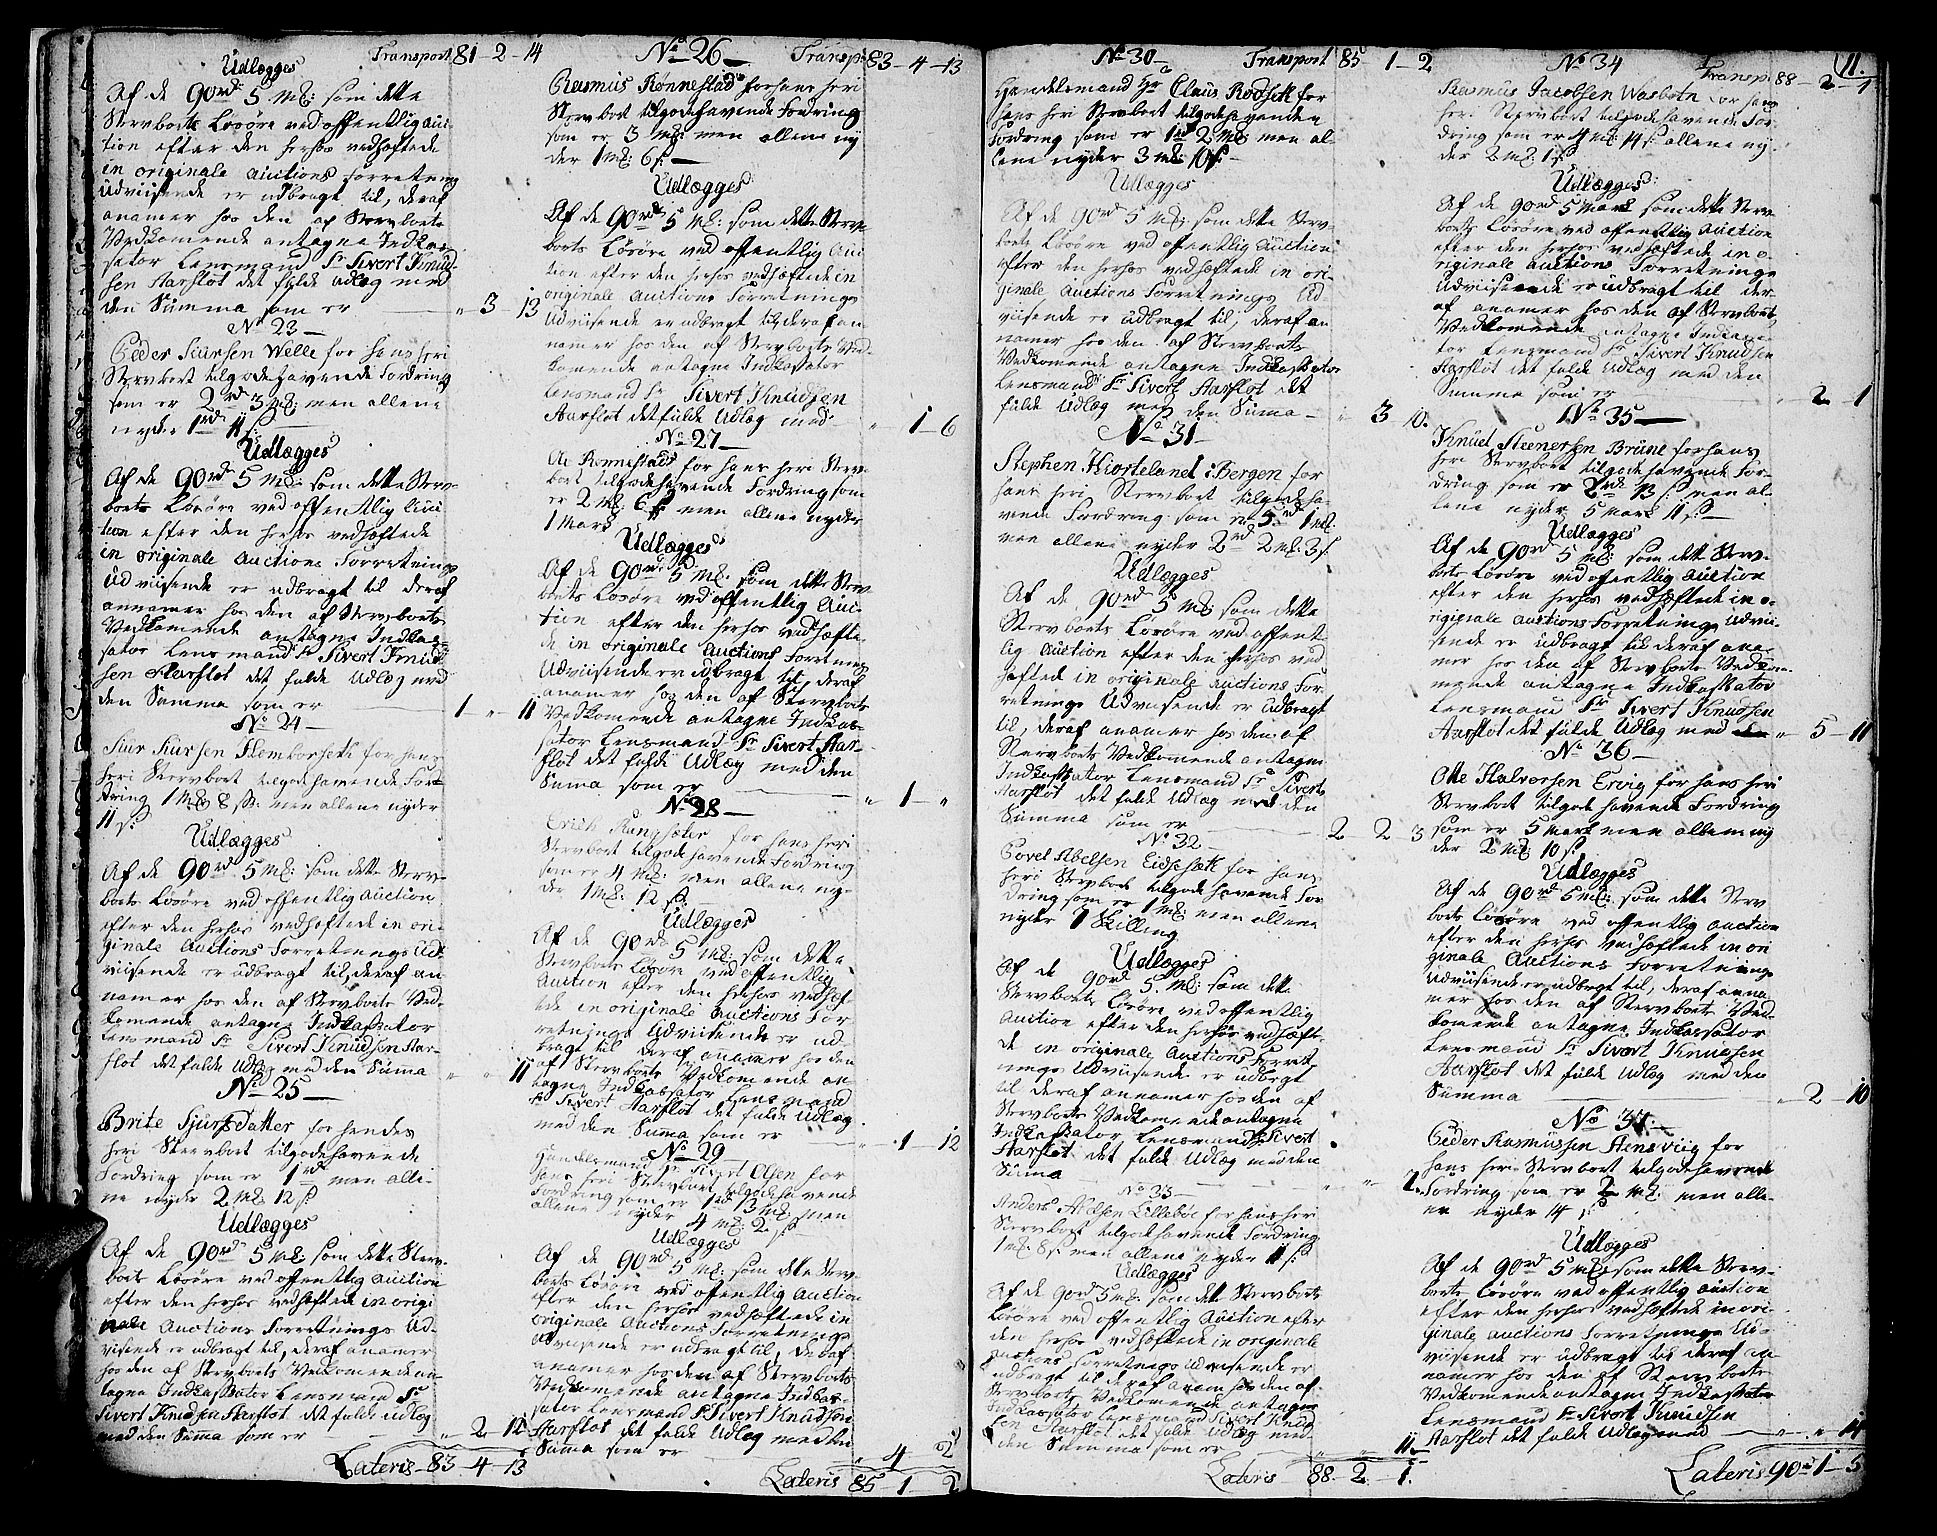 Transport 81 - 2 - 14
Udlægges
Af de 90rd 5 mk: som dette
Stervboets Løsøre ved offentlig Auc-
tion efter den herhos vedhæftede
in originale Auctions Forretning
Udviisende er udbragt til, deraf
anamer hos den af Stervboets
Vedkomende antagne Indkas-
sator Lensmand Sr Sivert Knud-
sen Aarsløt det fulde Udlæg med
den Summa som er " 3 13
No 23 -
Peder Siursen Welle for hans heri
Stervboet tilgodehavende Fordring
som er 2rd 3 mk: men allene
nyder 1rd 11 s:
Udlægges
Af de 90rd 5 mk: som dette Sterv-
boets Løsøre ved offentlig Auc-
tion efter den herhos vedhæftede
in originale Auctions Forretnings
Udviisende er udbragt til deraf
annamer hos den af Stervboets
Vedkomende antagne Indkas-
sator Lensmand Sr Sivert Knud-
sen Aarsløt det fulde Udlæg med
den Summa som er 1 - " - 11
No 24 -
Siur Siursen Flemborseth for hans
heri Stervboet tilgodehavende For-
dring 1 mk 8 s: men allene nyder
11 s:
Udlægges
Af de 90rd 5 mk: som dette Sterv-
boets Løsøre ved offentlig Auction
efter den herhos vedhæftede in ori-
ginale Auctions Forretnings Ud-
viisende er udbragt til, deraf an-
namer hos den af Stervboets Ved-
komende antagne Indkassator
Lensmand Sr Sivert Knudsen Aar-
sløt det fulde Udlæg med den Summa " " 11
No 25 -
Brite Sjurs Datter for hendes
heri Stervboet tilgodehavende
Fordring som er 1rd men alle-
ne nyder 2 mk 12 s
Udlægges
Af de 90rd 5 mk: som dette Sterv-
boets Løsøre ved offentlig Auction
efter den herhos vedhæftede in origi-
nale Auctions Forretnings Ud-
viisende er udbragt til, deraf anamer
hos den af Stervboets Vedkomende an-
tagne Indkassator Lensmand Sr
Sivert Knudsen Aarsløt det fulde Udlæg
med den Summa som er " 2 12
Lateris - 83 - 4 - 13
No 26 - Transp: 83 - 4 - 13
Rasmus Rønnestad for hans heri
Stervboet tilgodehavende Fordring
som er 3 mk men allene ny-
der 1 mk: 6 s: -
Udlægges
Af de 90rd 5 mk: som dette Sterv-
boets Løsøre ved offentlig Auc-
tion efter den herhos vedhæftede in
originale Auctions Forretnings
Udviisende er udbragt til, deraf an-
namer hos den af Stervboets Ved-
komende antagne Indkassator
Lensmand Sr Sivert Knudsen
Aarsløt det fulde Udlæg med " 1 - 6
No 27 -
Ae Rønnestad for hans heri Sterv-
boet tilgodehavende Fordring som
er 2 mk: 6 s men allene nyder
1 Mark
Udlægges
Af de 90rd 5 mk: som dette Sterv-
boets Løsøre ved offentlig Auc-
tion efter den herhos vedhæfte-
de in originale Auctions Forretnings
Udviisende er udbragt til, deraf
anamer hos den af Stervboets
Vedkomende antagne Indkas-
sator Lensmand Sr Sivert Aar-
sløt det fulde Udlæg med den
Summa som er " 1 - "
No 28 -
Erich Rungsæter for hans heri
Stervboet tilgodehavende Fordring
som er 4 mk: men allene ny-
der 1 mk: 12 s: -
Udlægges
Af de 90rd 5 mk: som dette
Stervboets Løsøre ved offentlig
Auction efter den herhos vedhæf-
tede in originale Auctions For-
retnings Udviisende er ud-
bragt til deraf anamer hos den
af Stervboets Vedkomende an-
tagne Indkassator Lensmand
Sr Sivert Aarsløt det fulde Udlæg
med den Summa som er " 1 - 12
No 29 -
Handelsmand Sr Sivert Olsen for
hans heri Stervboet tilgodehavende
Fordring som er 1rd 3 mk: men
allene nyder 4 mk: 2 s
Udlægges
Af de 90rd 5 mk: som dette Sterv-
boets Løsøre ved offentlig Auction
efter den herhos vedhæftede in
originale Auctions Forretnings
Udviisende er udbragt til, deraf
anamer hos den af Stervboets
Vedkomende antagne Indkas-
sator Lensmand Sr Sivert Knudsen
Aarsløt det fulde Udlæg med den
Summa som er " 4 2
Lateris 85 - 1 - 2
No 30 - Transport 85 1 - 2
Handelsmand Hr Claus Rodseth for
hans heri Stervboet tilgodehavende
Fordring som er 1rd 2 mk: men al-
lene nyder 3 mk: 10 s -
Udlægges
Af de 90rd 5 mk: som dette Sterv-
boets Løsøre ved offentlig Auction
efter den herhos vedhæftede in ori-
ginale Auctions Forretnings Ud-
viisende er udbragt til, deraf an-
namer hos den af Stervboets
Vedkomende antagne Indkassator
Lensmand Sr Sivert Aarsløt det
fulde Udlæg med den Summa - " 3 - 10.
No 31 -
Stephen Hiorteland i Bergen for
hans heri Stervboet tilgodeha-
vende Fordring som er 5rd 1 mk:
men allene nyder 2rd 2 mk: 3 s:
Udlægges
Af de 90rd 5 mk: som dette
Stervboets Løsøre ved offent-
lig Auction efter den herhos ved-
hæftede in originale Auctions For-
retnings Udviisende er udbragt
til, deraf anamer hos den af
Stervboets Vedkomende antagne
Indkassator Lensmand Sr Sivert
Aarsløt det fulde Udlæg med den
Summa som er 2 2 3
No 32 -
Povel Abelsen Eidseth for hans
heri Stervboet tilgodehavende For-
dring som er 1 mk: men allene
nyder 1 Skilling
Udlægges
Af de 90rd 5. mk: som dette
Stervboets Løsøre ved offentlig
Auction efter den herhos vedhæfte-
de in originale Auctions Forret-
nings Udviisende er udbragt
til deraf anamer hos den af
Stervboets Vedkomende antagne
Indkassator Lensmand Sr Sivert
Aarsløt det fulde Udlæg med den
Summa " " 1.
No 33 -
Anders Abelsen Lillebøe for hans heri
Stervboet tilgodehavende Fordring
1 mk: 8 s: men allene nyder 11 s:
Udlægges
Af de 90rd 5 mk: som dette Stervboets
Løsøre ved offentlig Auction efter
den herhos vedhæftede in originale
Auctions Forretnings Udviisende er
udbragt til deraf anam: hos den af
Stervboets Vedkomende antagne
Indkassator Lensmand Sivert Knud-
sen Aarsløt det fulde Udlæg med
den Summa som er " " 11 -
Lateris 88. 2 - 1.
11.
No 34 Transp: 88 - 2 - 1
Rasmus Jacobsen Wasbotn for hans
heri Stervboet tilgodehavende For-
dring som er 4 mk: 14 s: allene ny-
der 2 mk: 1 s
Udlægges
Af de 90rd 5 Mark som dette Sterv-
boets Løsøre ved offentlig Auction
efter den herhos vedhæftede in o-
riginale Auctions Forretnings
Udviisende er udbragt til der-
af anamer hos den af Stervboets
Vedkomende antagne Indkassa-
tor Lensmand Sr Sivert Knudsen
Aarsløt det fulde Udlæg med den
Summa som er 2 - 1
No 35 -
Knud Steenersen Brune for hans
heri Stervboet tilgodehavende For-
dring som er 2rd 13 s: men al-
lene nyder 5 Mark 11 s: -
Udlægges
Af de 90rd 5 mk: som dette Sterv-
boets Løsøre ved offentlig Auction
efter den herhos vedhæftede in o-
riginale Auctions Forretnings Udvii-
sende er udbragt til deraf ana-
mer hos den af Stervboets Vedkom-
mende antagne Indkassator
Lensmand Sr Sivert Knudsen
Aarsløt det fulde Udlæg med " 5 - 11
No 36 -
Ole Halvorsen Ervig for hans heri
Stervboet tilgodehavende Fordring
som er 5 Mark men allene ny-
der 2 mk: 10 s
Udlægges
Af de 90rd 5 mk: som dette Sterv-
boets Løsøre ved offentlig Auction
efter den herhos vedhæftede in ori-
ginale Auctions Forretnings
Udviisende er udbragt til, deraf anna-
mer hos den af Stervboets Ved-
komende antagne Indkassator
Lensmand Sr Sivert Knudsen
Aarsløt det fulde Udlæg med den
Summa " 2 - 10
No 37 -
Peder Rasmussen Stensviig for
hans heri Stervboet tilgodehavende
Fordring som er 2 mk: men alle-
ne nyder 14 s
Udlægges
Af de 90rd 5 mk: som dette Sterv-
boets Løsøre ved offentlig Auction
efter den herhos vedhæftede in ori-
ginale Auctions Forretnings Ud-
viisende er udbragt til deraf an-
namer hos den af Stervboets
Vedkomende antagne Indkassator
Lensmand Sr Sivert Knudsen
Aarsløt det fulde Udlæg med - " - " 14
Lateris 90rd 1 - 5